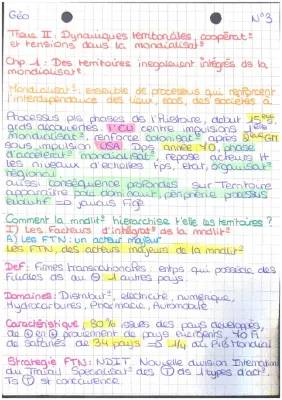 Géo N°3
Thème II : Dynamiques territoriales, coopérat°
et tensions dans la mondialisat°
Chp 1 : Des territoires inégalement intégrés de la
mondialisat°
Mondialisat° : ensemble de processus qui renforcent
l'interdépendance des lieux, eco, des sociétés à
Processus pls phases de l'Histoire, début 15e
grds découvertes. l'EU centre impulsions 1ère
mondialisat°, renforce colonisat° après 2nde GM
sous impulsion USA. Dps année 70, phase
d'accélérat° mondialisat°, repose acteurs et
les niveaux d'échelles tps, état, organisat°
régional
aussi conséquence profonds sur Territoire
apparaitre pôle dominant, périphérie processus
évolutif => jamais figé
Comment la mndlt° hiérarchise t'elle les territoires ?
I) Les Facteurs d'intégrat° de la mndlt°
A) Les FTN : un acteur majeur
Les FTN, des acteurs majeurs de la mndlt°
Def : Firmes transnationales. entps qui possède des
filiales ds au - 1 autres pays.
Domaines : Distribut°, électricité, numérique,
Hydrocarbures, Pharmacie, Automobile
Caractéristique : 80% issues des pays développés,
de + en + proviennent de pays émergents, 70 M
de salariés de 34 pays => 1/4 du PIB Mondial
Stratégie FTN : NDIT. Nouvelle division Internation
du Travail Spécialisat° des T ds 1 types d'act°.
Ts T st concurrence.